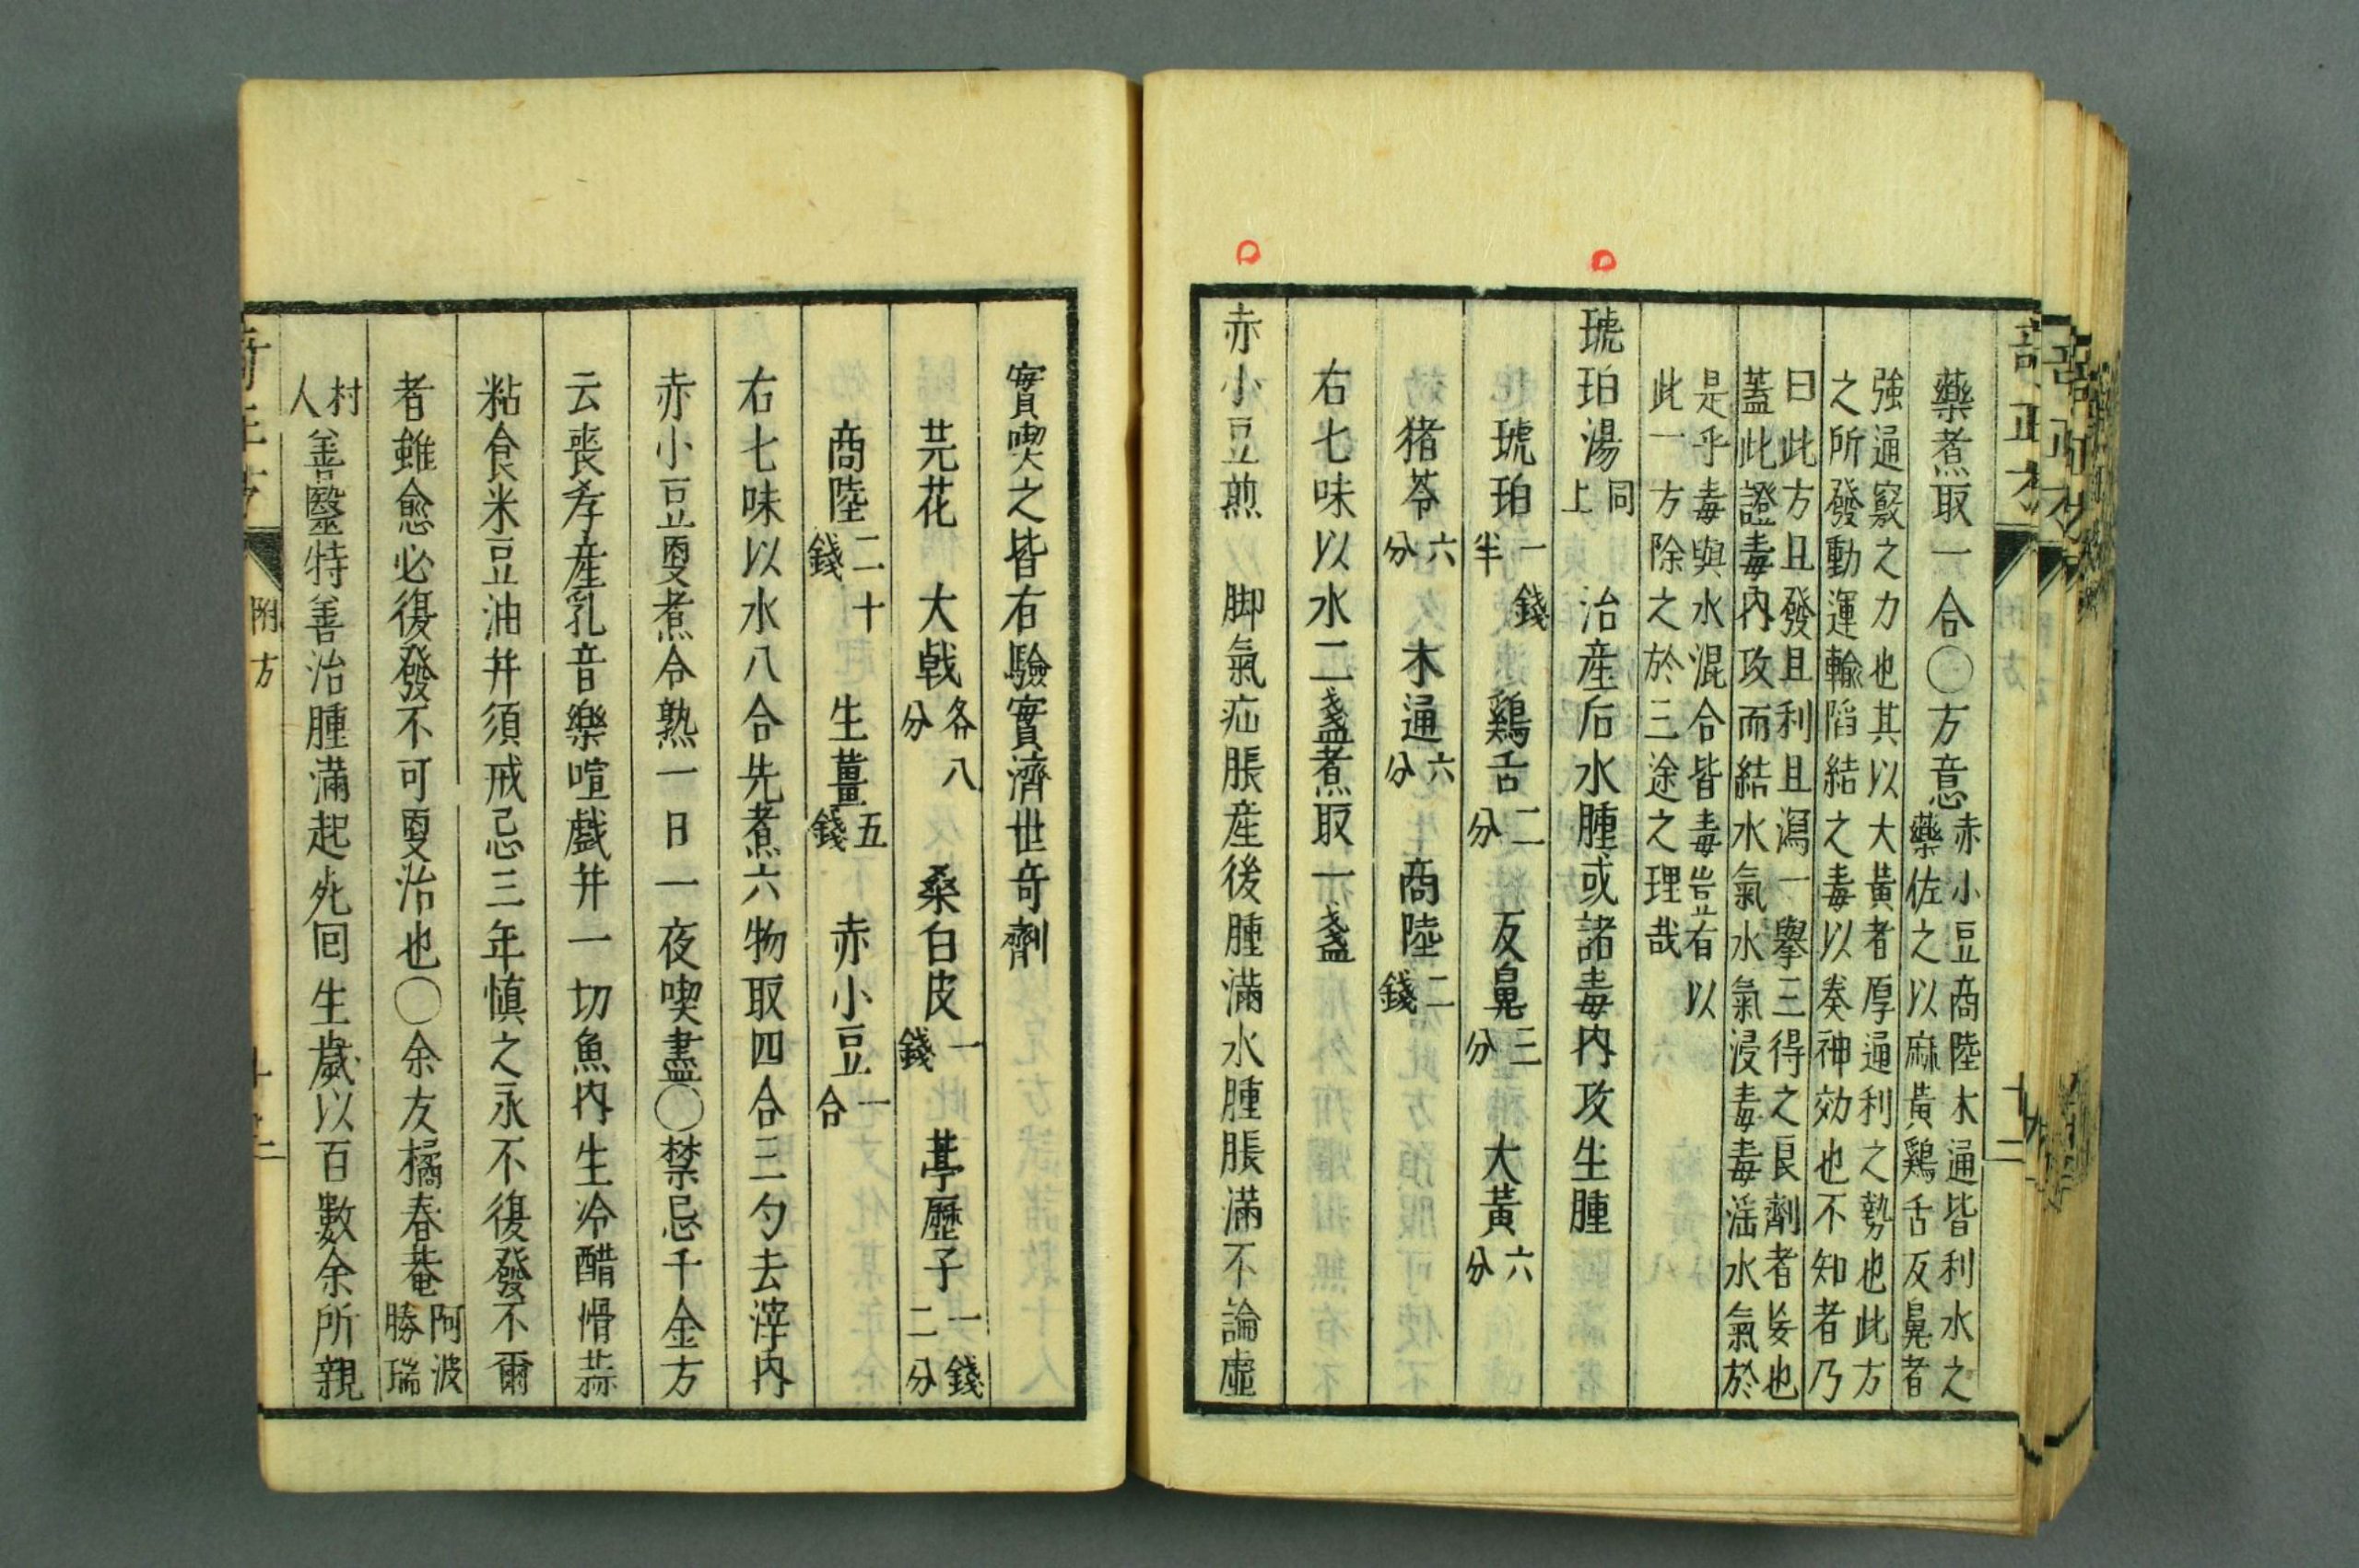 藥煮取一合○方意赤小豆商陸木通皆利水之
藥佐之以麻黃鷄舌反鼻者
強通竅之力也其以大黃者厚通利之勢也此方
之所發動運輸陷結之毒以奏神効也不知者乃
曰此方且發且利且瀉一擧三得之良劑者妄也
蓋此證毒內攻而結水氣水氣浸毒毒滛水氣於
是乎毒與水混合皆毒豈有以
此一方除之於三途之理哉
琥珀湯同上 治產后水腫或諸毒內攻生腫
琥珀一錢半 鷄舌二分 反鼻三分 大黃六分
猪苓六分 木通六分 商陸二錢
右七味以水二盞煮取一盞
赤小豆煎 脚氣疝脹產後腫滿水腫脹滿不論虛
實喫之皆有驗實濟世奇劑
芫花 大戟各八分 桑白皮一錢 葶歷子一錢二分
商陸二十錢 生薑五錢 赤小豆一合
右七味以水八合先煮六物取四合三勺去滓內
赤小豆更煮令熟一日一夜喫盡○禁忌千金方
云喪孝產乳音樂喧戲幷一切魚內生冷醋滑蒜
粘食米豆油幷須戒忌三年愼之永不復發不爾
者雖愈必復發不可更治也○余友橘春菴阿波勝瑞
村人善醫特善治腫滿起死回生歲以百數余所親
附方